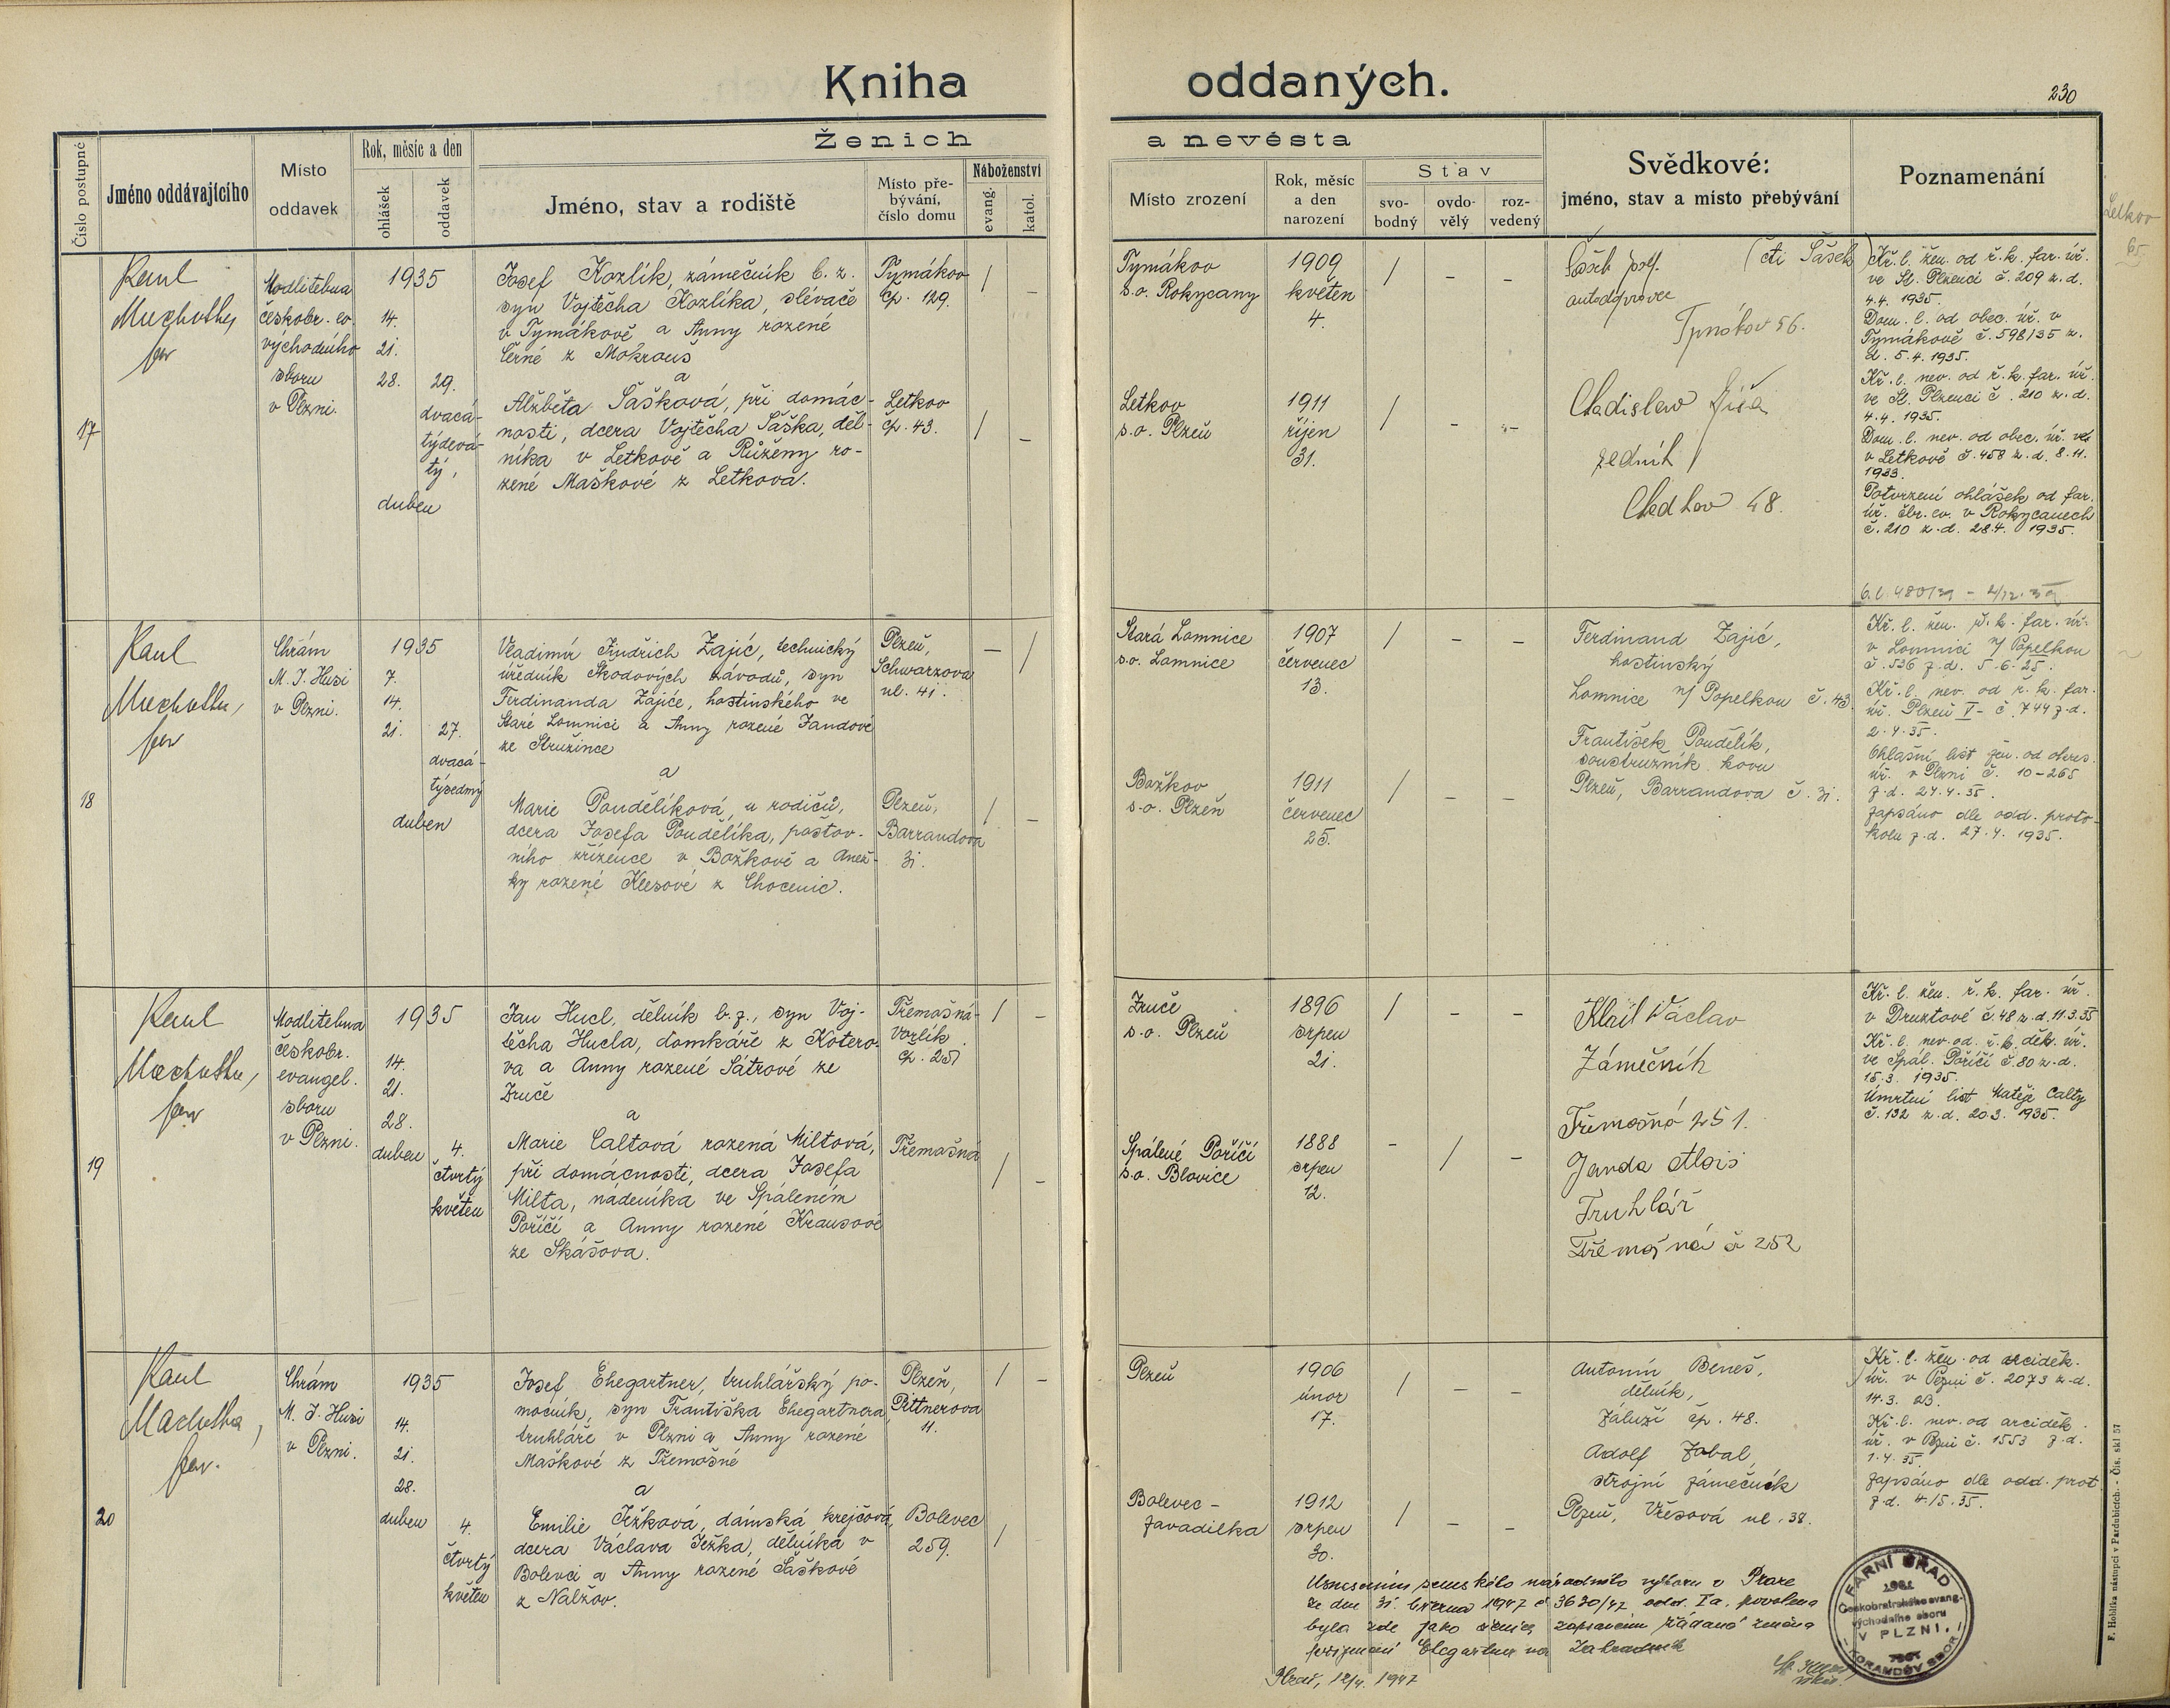 Kniha oddaných.
230
Číslo postupné
Jméno oddávajícího
Místo
oddavek
Rok, měsíc a den
ohlášek
oddavek
Ženich a nevěsta
Jméno, stav a rodiště
Místo pře-
bývání,
číslo domu
Náboženství
evang.
katol.
Místo zrození
Rok, měsíc
a den
narození
Stav
svo-
bodný
ovdo-
vělý
roz-
vedený
Svědkové:
jméno, stav a místo přebývání
Poznamenání
Letkov
65
17
Karel
far
Modlitebna
českobr. ev.
východního
sboru
v Plzni.
1935
14.
21.
28.
29.
dvacá-
týdevá-
tý,
duben
Josef Kozlík, zámečník b. z.
syn Vojtěcha Kozlíka, slévače
v Tymákově a Anny rozené
Černé z Mokrouš
a
Alžběta Šašková, při domác-
nosti, dcera Vojtěcha Šaška, děl-
níka v Letkově a Růženy ro-
zené Maškové z Letkova.
Tymákov
čp. 129.
Letkov
čp. 43.
/ –
/ –
Tymákov
s.o. Rokycany
1909
květen
4.
/ – –
Letkov
s.o. Plzeň
1911
říjen
31.
/ – –
(čti Šašek)
autodopravce
56.
zedník
48.
Kř. l. žen. od ř. k. far. úř.
ve St. Plzenci č. 209 z. d.
4.4. 1935.
Dom. l. od obec. úř. v
Tymákově č. 598/35 z.
d. 5.4. 1935.
Kř. l. nev. od ř. k. far. úř.
ve St. Plzenci č. 210 z. d.
4.4. 1935.
Dom. l. nev. od obec. úř.
v Letkově č. 458 z. d. 8.11.
1933.
Potvrzení ohlášek od far.
úř. čbr. ev. v Rokycanech
č. 210 z. d. 28.4. 1935.
18
Karel
far
Chrám
M. J. Husi
v Plzni.
1935
7.
14.
21.
27.
dvacá-
týsedmý
duben
Vladimír Jindřich Zajíc, technický
úředník Škodových závodů, syn
Ferdinanda Zajíce, hostinského ve
Staré Lomnici a Anny rozené Jandové
ze Stružince
a
Marie Poudělíková, u rodičů,
dcera Josefa Poudělíka, poštov-
ního zřízence v Božkově a Anež-
ky rozené Kleesové z Chocenic.
Plzeň,
Schwarzova
ul. 41.
Plzeň,
Barrandova
31.
– /
/ –
Stará Lomnice
s.o. Lomnice
1907
červenec
13.
/ – –
Božkov
s.o. Plzeň
1911
červenec
25.
/ – –
Ferdinand Zajíc,
hostinský
Lomnice n/ Popelkou č. 43.
František Poudělík,
soustružník kovu
Plzeň, Barrandova č. 31.
Kř. l. žen. ř. k. far. úř.
v Lomnici n/ Popelkou
č. 536 z. d. 5.6.25.
Kř. l. nev. od ř. k. far.
úř. Plzeň I – č. 744 z. d.
2.4.35.
Ohlašní list žen. od okres.
úř. v Plzni č. 10-265
z. d. 24.4.35.
Zapsáno dle odd. proto-
kolu z. d. 27.4. 1935.
19
Karel
far
Modlitebna
českobr.
evangel.
sboru
v Plzni.
1935
14.
21.
28.
duben
4.
čtvrtý
květen
Jan Hucl, dělník b. z., syn Voj-
těcha Hucla, domkáře z Kotero-
va a Anny rozené Šátrové ze
Zruče
a
Marie Caltová rozená Miltová,
při domácnosti, dcera Josefa
Milta, nádeníka ve Spáleném
Poříčí a Anny rozené Krausové
ze Skašova.
Třemošná-
Vorlík
čp. 251
Třemošná
/ –
/ –
Zruče
s.o. Plzeň
1896
srpen
21.
/ – –
Spálené Poříčí
s.o. Blovice
1888
srpen
12.
– / –
Klail Václav
Zámečník
Třemošná 251.
Janda Alois
Truhlář
Třemošná č 252
Kř. l. žen. ř. k. far. úř.
v Druztové č. 48 z. d. 11.3.35
Kř. l. nev. od. ř. k. děk. úř.
ve Spál. Poříčí č. 80 z. d.
15.3. 1935.
Úmrtní list Matěje Calty
č. 132 z. d. 20.3. 1935.
20
Karel
Machotka,
far.
Chrám
M. J. Husi
v Plzni.
1935
14.
21.
28.
duben
4.
čtvrtý
květen
Josef Ehegartner, truhlářský po-
mocník, syn Františka Ehegartnera
truhláře v Plzni a Anny rozené
Maškové z Třemošné
a
Emilie Ježková, dámská krejčová,
dcera Václava Ježka, dělníka v
Bolevci a Anny rozené Šaškové
z Nalžov.
Plzeň,
Pittnerova
11.
Bolevec
259.
/ –
/
Plzeň
1906
únor
17.
/ – –
Bolevec –
Zavadilka
1912
srpen
30.
/ – –
Antonín Beneš,
dělník,
Záluží čp. 48.
Adolf Zabal,
strojní zámečník
Plzeň, Vřesová ul. 38.
Kř. l. žen. od arciděk.
úř. v Plzni č. 2073 z. d.
14.3. 23.
Kř. l. nev. od arciděk.
úř. v Plzni č. 1553 z. d.
1.4.35.
Zapsáno dle odd. prot.
z. d. 4./5. 35.
Usnesením zemského národního výboru v Praze
ze dne 31. března 1947 č 3630/47 odd. Ia, povolena
byla zde jako ženich zapsaném žádaná změna
příjmení Ehegartner na Zahradník
Plzeň, 12/4. 1947
FARNÍ ÚŘAD
Českobratrského evang.
východního sboru
V PLZNI.
KORANDŮV SBOR
F. Hoblíka nástupci v Pardubicích. - Čís. skl 57